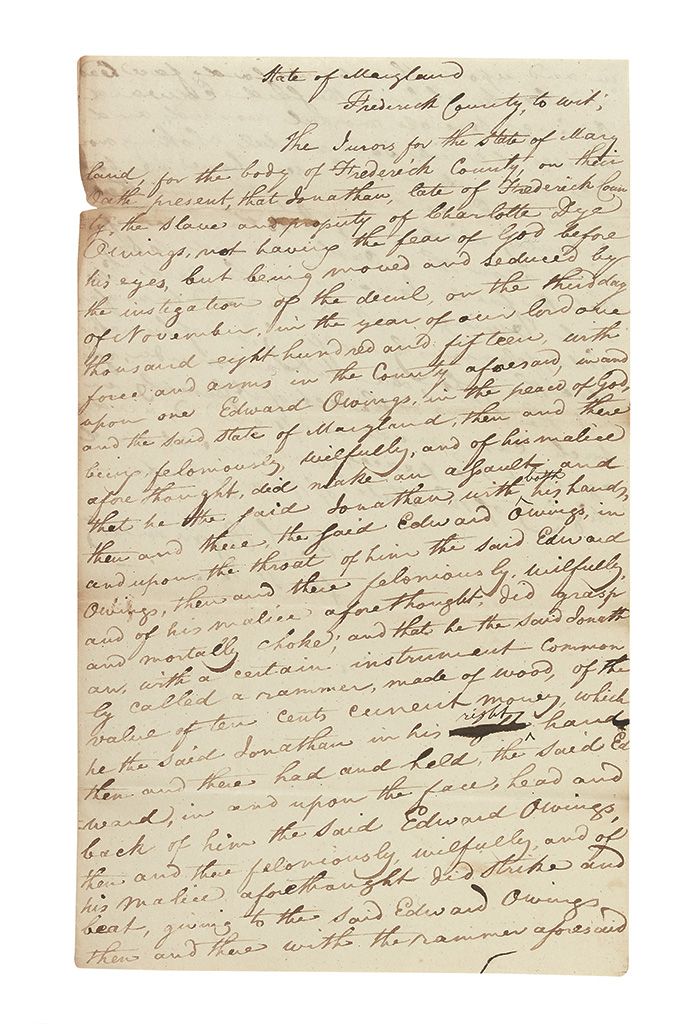 State of Maryland
Frederick County, to wit;
The Jurors for the State of Mary
land, for the body of Frederick County, on their
Oath present, that Jonathan, late of Frederick Coun
ty, the slave and property of Charlotte Dye
Owings, not having the fear of God before
his eyes, but being moved and seduced by
the instigation of the devil, on the third day
of November, in the year of our lord one
thousand eight hundred and fifteen, with
force and arms in the County aforesaid, in and
upon one Edward Owings, in the peace of God,
and the said State of Maryland, then and there
being feloniously, wilfully, and of his malice
afore thought, did make an assault, and
that he the said Jonathan, with both his hands,
then and there, the said Edward Owings, in
and upon the throat of him the said Edward
Owings, then and there feloniously, wilfully,
and of his malice aforethought, did grasp
and mortally choke; and that he the said Jonath
an, with a certain instrument common
ly called a rammer, made of wood, of the
value of ten cents current money, which
he the said Jonathan in his right hand
then and there had and held, the said Ed
ward, in and upon the face, head and
back of him the said Edward Owings,
then and there feloniously, wilfully, and of
his malice aforethought did strike and
beat, giving to the said Edward Owings
then and there with the rammer aforesaid